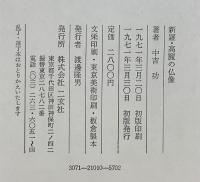 新羅・高麗の仏像
著者 中吉 功
一九七一年三月二〇日 初版印刷
一九七一年三月三〇日 初版発行
定価 二八〇〇円
文栄印刷・東京美術印刷・板倉製本
発行者 渡邊隆男
発行所 株式会社 二玄社
東京都千代田区神田神保町二ノ四二
振替東京二八七八二番
電話〇三(二六三)六〇五一(四)
乱丁・落丁本はおとりかえいたします
3071—21010—5702